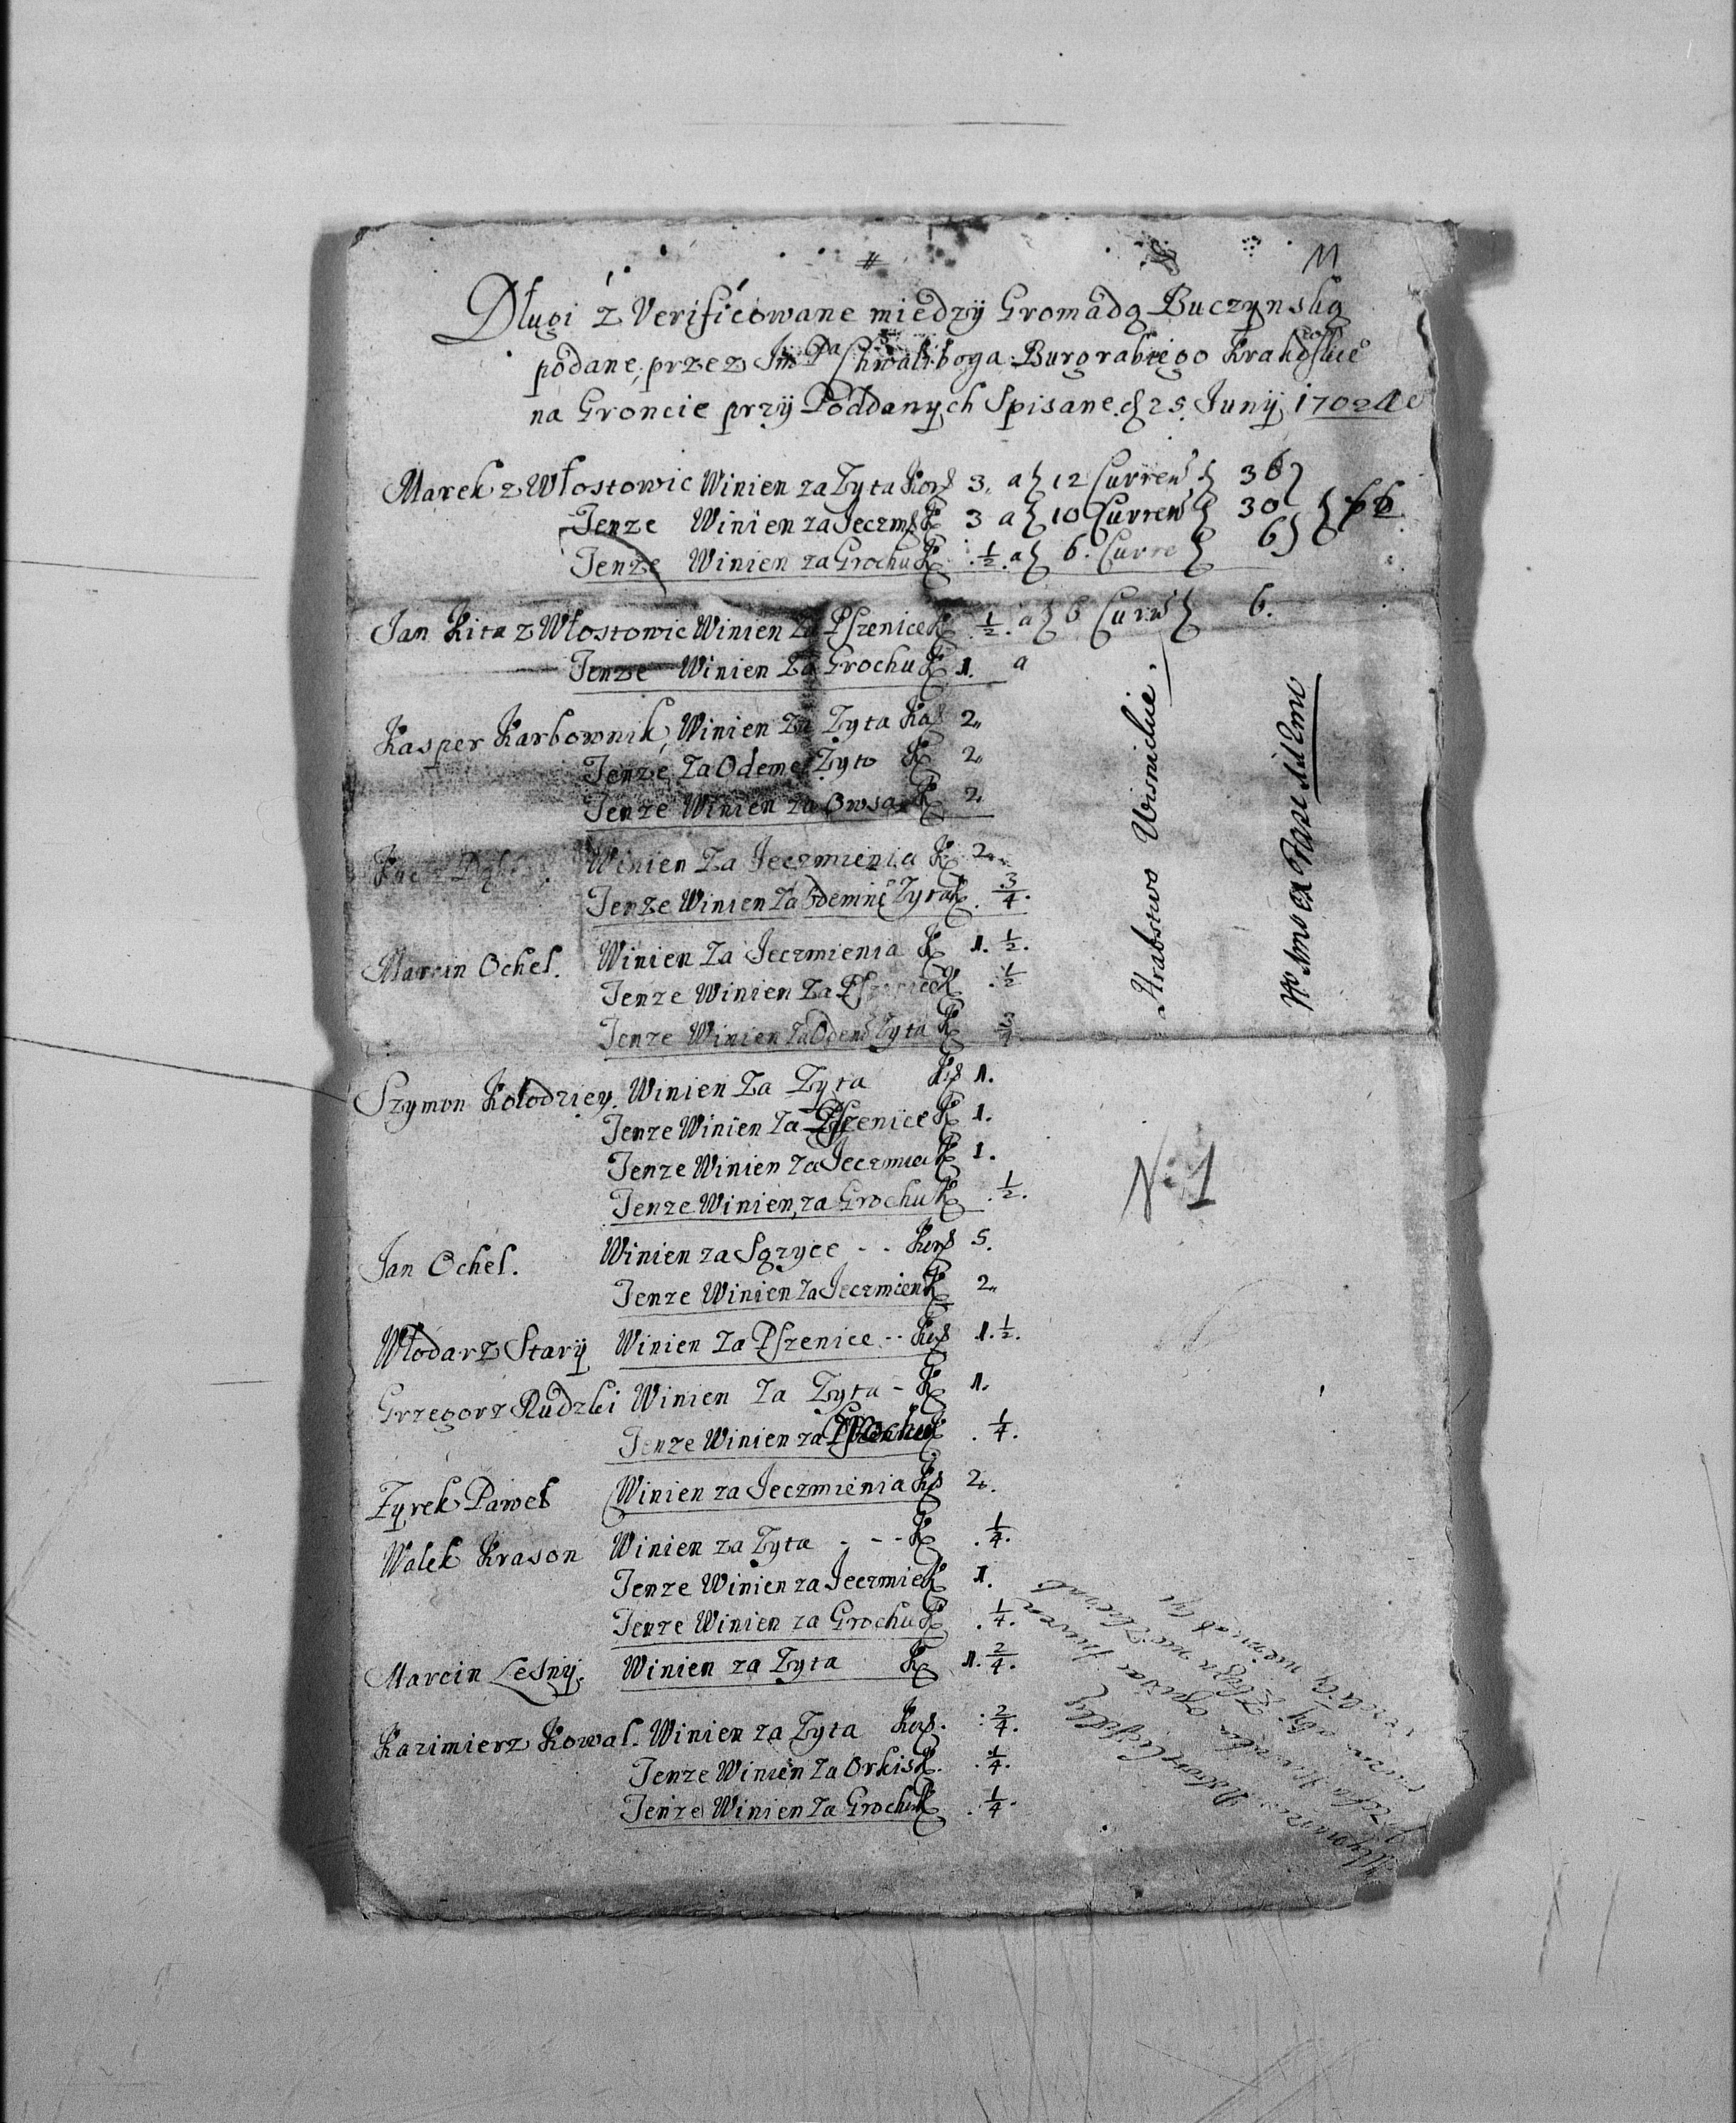 11
Długi z Verificowane miedzÿ Gromadą Buczÿnską
podane, przez Jm Pa Chwaliboga Burgrabiego Krakoskie
na Groncie przÿ Poddanÿch Spisane d 25 Junÿ 1702
Marek z Włostowic Winien za Zyta Kor 3. a 12 Curren 36
Jenze Winien za Jeczm K 3 a 10 Curren 30 66
Jenze Winien za Grochu K 1/2. a 6. Curre 6
Jan Kita z Włostowic Winien Za Pszenice K 1/2. a 6 Curr 6.
Jenze Winien Za Grochu K 1. a
Kasper Karbownik Winien Za Zyta Ko 2.
Jenze Za Odeme Zyto K 2.
Jenze Winien za Owsa K 2.
Winien Za Jeczmienia K 2.
Jenze Winien Za Odemne Zyta K 3/4.
Marcin Ochel. Winien Za Jeczmienia K 1. 1/2.
Jenze Winien Za Pszenice K 1/2
Jenze Winien Za Odem Zyta K 3/4
Szymon Kołodziey. Winien Za Zyta K 1.
Jenze Winien Za Pszenice K 1.
Jenze Winien Za Jeczmie K 1.
Jenze Winien, za Grochu K 1/2.
Jan Ochel. Winien za Sązyce - - Kor 5.
Jenze Winien Za Jeczmien K 2.
Włodarz Starÿ Winien Za Pszenice - - Kor 1. 1/2.
Grzegorz Rudzki Winien Za Zyta - K 1.
Jenze Winien za K 1/4.
Zyrek Paweł Winien za Jeczmienia K 2.
Walek Krason Winien za Zyta - - - K 1/4.
Jenze Winien za Jeczmie K 1.
Jenze Winien za Grochu K 1/4.
Marcin Lesnÿ. Winien za Zyta K 1. 2/4.
Kazimierz Kowal. Winien za Zyta Kor. 2/4.
Jenze Winien Za Orkisz K. 1/4.
Jenze Winien Za Grochu K 1/4.
Hrabstwo Wisnickie.
No 1